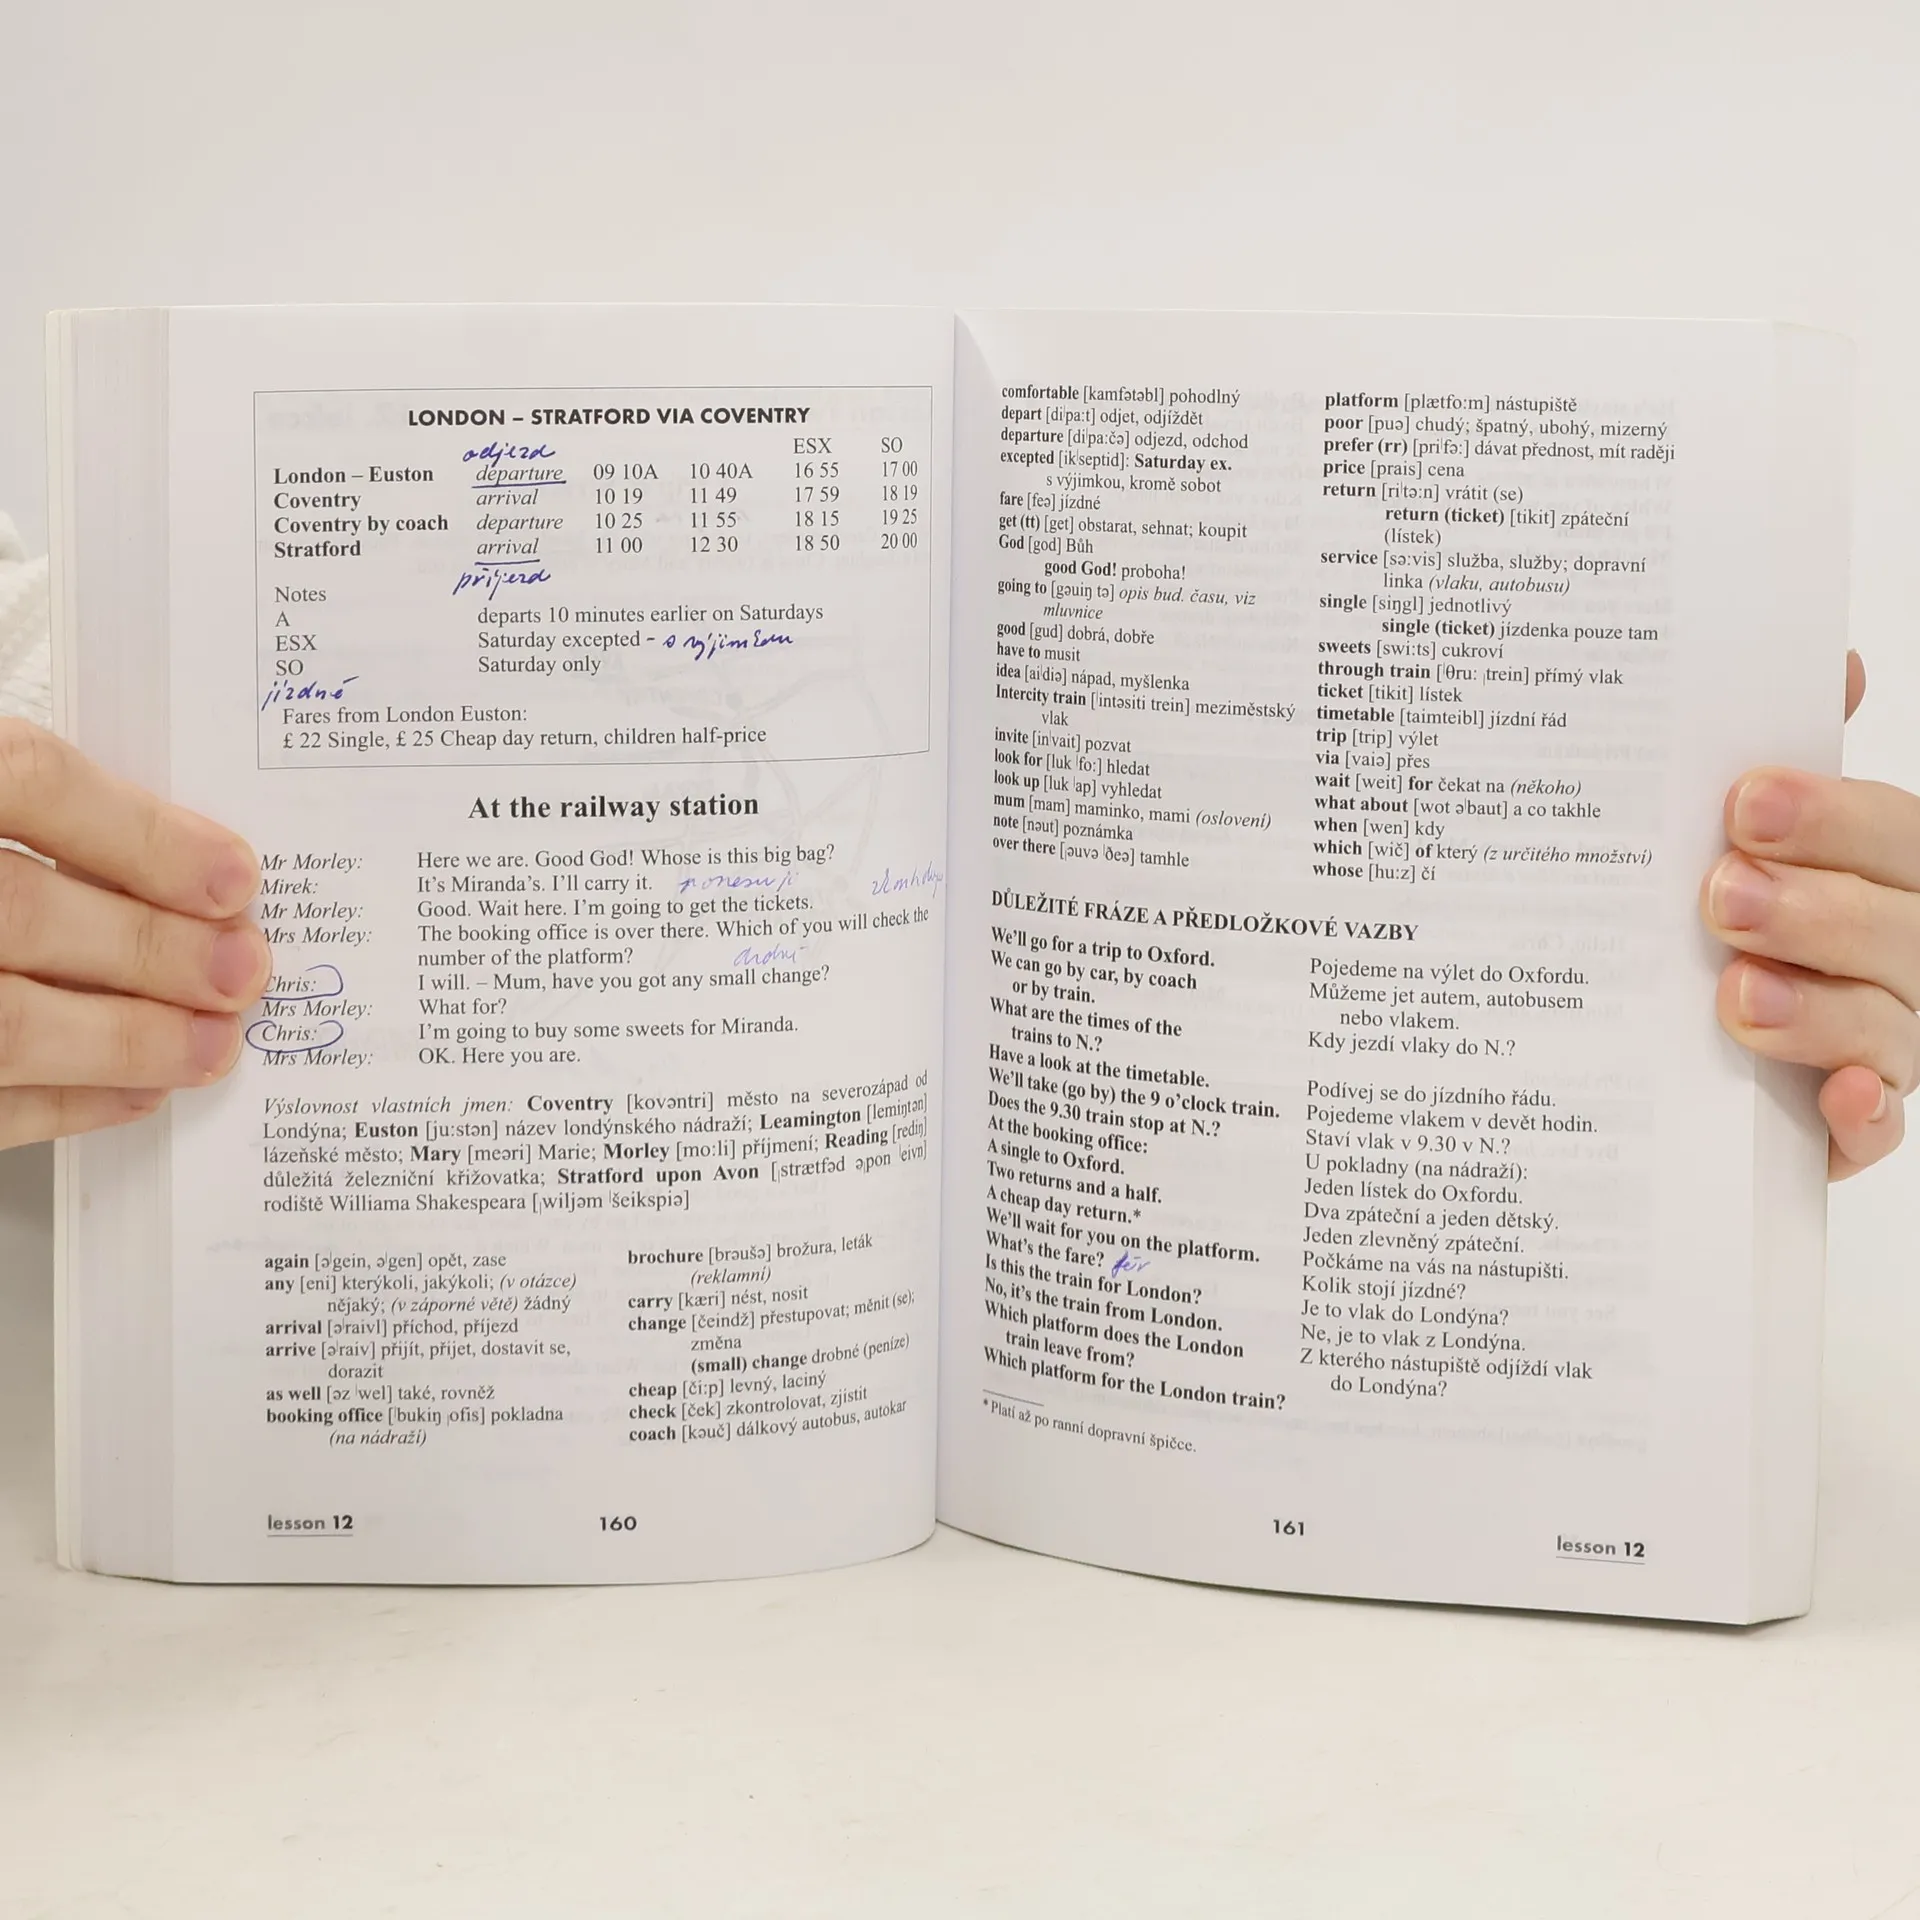 LONDON – STRATFORD VIA COVENTRY
ESX SO
odjezd
London – Euston departure 09 10A 10 40A 16 55 17 00
Coventry arrival 10 19 11 49 17 59 18 19
Coventry by coach departure 10 25 11 55 18 15 19 25
Stratford arrival 11 00 12 30 18 50 20 00
příjezd
Notes
A departs 10 minutes earlier on Saturdays
ESX Saturday excepted – s výjimkou
SO Saturday only
jízdné
Fares from London Euston:
£ 22 Single, £ 25 Cheap day return, children half-price
At the railway station
Mr Morley: Here we are. Good God! Whose is this big bag?
Mirek: It's Miranda's. I'll carry it. ponesu ji
Mr Morley: Good. Wait here. I'm going to get the tickets.
Mrs Morley: The booking office is over there. Which of you will check the
number of the platform?
Chris: I will. – Mum, have you got any small change?
Mrs Morley: What for?
Chris: I'm going to buy some sweets for Miranda.
Mrs Morley: OK. Here you are.
Výslovnost vlastních jmen: Coventry [kovəntri] město na severozápad od
Londýna; Euston [ju:stən] název londýnského nádraží; Leamington [lemiŋtən]
lázeňské město; Mary [meəri] Marie; Morley [mo:li] příjmení; Reading [rediŋ]
důležitá železniční křižovatka; Stratford upon Avon [ˌstrætfəd əˌpon ˈeivn]
rodiště Williama Shakespeara [ˌwiljəm ˈšeikspiə]
again [əˈgein, əˈgen] opět, zase
any [eni] kterýkoli, jakýkoli; (v otázce)
nějaký; (v záporné větě) žádný
arrival [əˈraivl] příchod, příjezd
arrive [əˈraiv] přijít, přijet, dostavit se,
dorazit
as well [əz ˈwel] také, rovněž
booking office [ˈbukiŋ ˌofis] pokladna
(na nádraží)
brochure [brəušə] brožura, leták
(reklamní)
carry [kæri] nést, nosit
change [čeindž] přestupovat; měnit (se);
změna
(small) change drobné (peníze)
cheap [či:p] levný, laciný
check [ček] zkontrolovat, zjistit
coach [kəuč] dálkový autobus, autokar
lesson 12
160
comfortable [kamfətəbl] pohodlný
depart [diˈpa:t] odjet, odjíždět
departure [diˈpa:čə] odjezd, odchod
excepted [ikˈseptid]: Saturday ex.
s výjimkou, kromě sobot
fare [feə] jízdné
get (tt) [get] obstarat, sehnat; koupit
God [god] Bůh
good God! proboha!
going to [gəuiŋ tə] opis bud. času, viz
mluvnice
good [gud] dobrá, dobře
have to musit
idea [aiˈdiə] nápad, myšlenka
Intercity train [ˈintəsiti trein] meziměstský
vlak
invite [inˈvait] pozvat
look for [luk ˈfo:] hledat
look up [luk ˈap] vyhledat
mum [mam] maminko, mami (oslovení)
note [nəut] poznámka
over there [ˌəuvə ˈðeə] tamhle
platform [plætfo:m] nástupiště
poor [puə] chudý; špatný, ubohý, mizerný
prefer (rr) [priˈfə:] dávat přednost, mít raději
price [prais] cena
return [riˈtə:n] vrátit (se)
return (ticket) [tikit] zpáteční
(lístek)
service [sə:vis] služba, služby; dopravní
linka (vlaku, autobusu)
single [siŋgl] jednotlivý
single (ticket) jízdenka pouze tam
sweets [swi:ts] cukroví
through train [ˈθru: ˌtrein] přímý vlak
ticket [tikit] lístek
timetable [taimteibl] jízdní řád
trip [trip] výlet
via [vaiə] přes
wait [weit] for čekat na (někoho)
what about [wot əˈbaut] a co takhle
when [wen] kdy
which [wič] of který (z určitého množství)
whose [hu:z] čí
DŮLEŽITÉ FRÁZE A PŘEDLOŽKOVÉ VAZBY
We'll go for a trip to Oxford. Pojedeme na výlet do Oxfordu.
We can go by car, by coach Můžeme jet autem, autobusem
or by train. nebo vlakem.
What are the times of the Kdy jezdí vlaky do N.?
trains to N.?
Have a look at the timetable. Podívej se do jízdního řádu.
We'll take (go by) the 9 o'clock train. Pojedeme vlakem v devět hodin.
Does the 9.30 train stop at N.? Staví vlak v 9.30 v N.?
At the booking office: U pokladny (na nádraží):
A single to Oxford. Jeden lístek do Oxfordu.
Two returns and a half. Dva zpáteční a jeden dětský.
A cheap day return.* Jeden zlevněný zpáteční.
We'll wait for you on the platform. Počkáme na vás na nástupišti.
What's the fare? fér Kolik stojí jízdné?
Is this the train for London? Je to vlak do Londýna?
No, it's the train from London. Ne, je to vlak z Londýna.
Which platform does the London Z kterého nástupiště odjíždí vlak
train leave from? do Londýna?
Which platform for the London train?
* Platí až po ranní dopravní špičce.
161
lesson 12